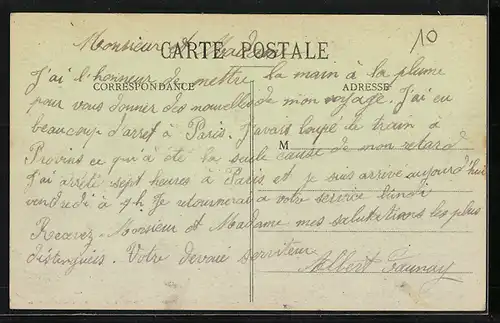 10
Monsieur et Madame
CARTE POSTALE
CORRESPONDANCE
ADRESSE
M
J'ai l'honneur de mettre la main à la plume
pour vous donner des nouvelles de mon voyage. J'ai eu
beaucoup d'arret à Paris. J'avais loupé le train à
Provins ce qui à été la seule cause de mon retard
J'ai arrêté sept heures à Paris et je suis arrivé aujourd'hui
vendredi à 7h Je retournerai à votre service lundi
Recevez Monsieur et Madame mes salutations les plus
distingués. Votre devoué serviteur
Albert Faunay